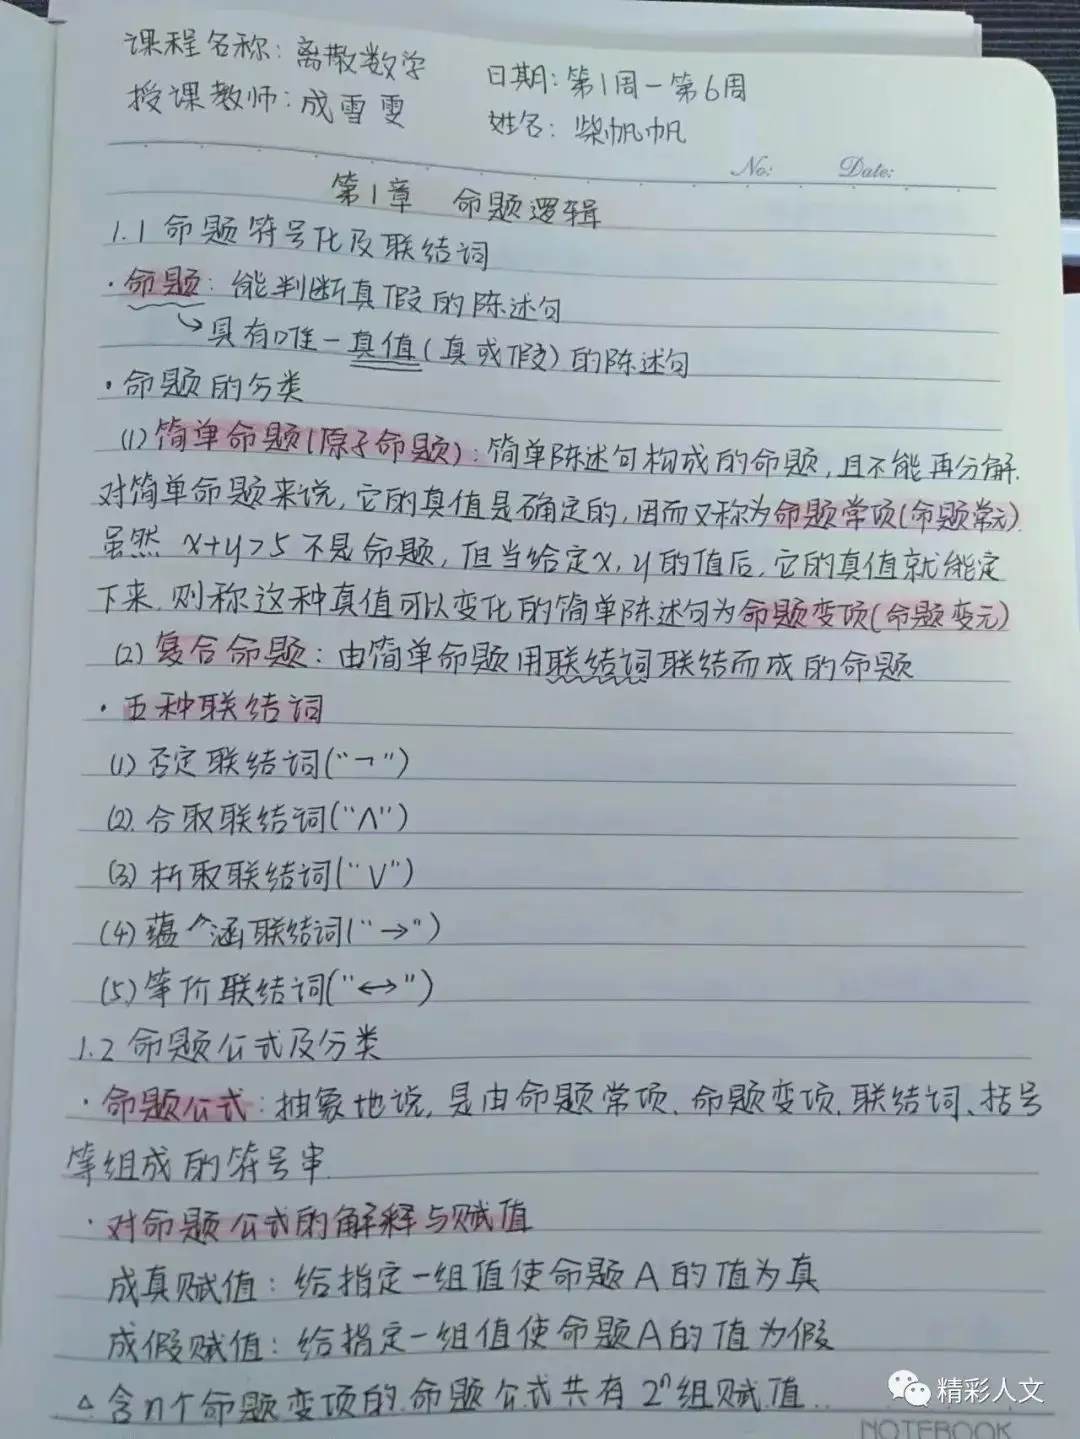 课程名称：离散数学
日期：第1周－第6周
授课教师：成雪雯
姓名：柴帆帆
No:
Date:
第1章 命题逻辑
1.1 命题符号化及联结词
·命题：能判断真假的陈述句
↘具有唯一真值（真或假）的陈述句
·命题的分类
(1)简单命题(原子命题)：简单陈述句构成的命题，且不能再分解.
对简单命题来说，它的真值是确定的，因而又称为命题常项(命题常元).
虽然 x+y>5 不是命题，但当给定x，y的值后，它的真值就能定
下来，则称这种真值可以变化的简单陈述句为命题变项(命题变元)
(2) 复合命题：由简单命题用联结词联结而成的命题
·五种联结词
(1) 否定联结词("¬")
(2). 合取联结词("∧")
(3) 析取联结词("∨")
(4) 蕴涵联结词("→")
(5) 等价联结词("↔")
1.2 命题公式及分类
·命题公式：抽象地说，是由命题常项、命题变项、联结词、括号
等组成的符号串.
·对命题公式的解释与赋值
成真赋值：给指定一组值使命题A的值为真
成假赋值：给指定一组值使命题A的值为假
△含n个命题变项的命题公式共有2ⁿ组赋值..
精彩人文
NOTEBOOK